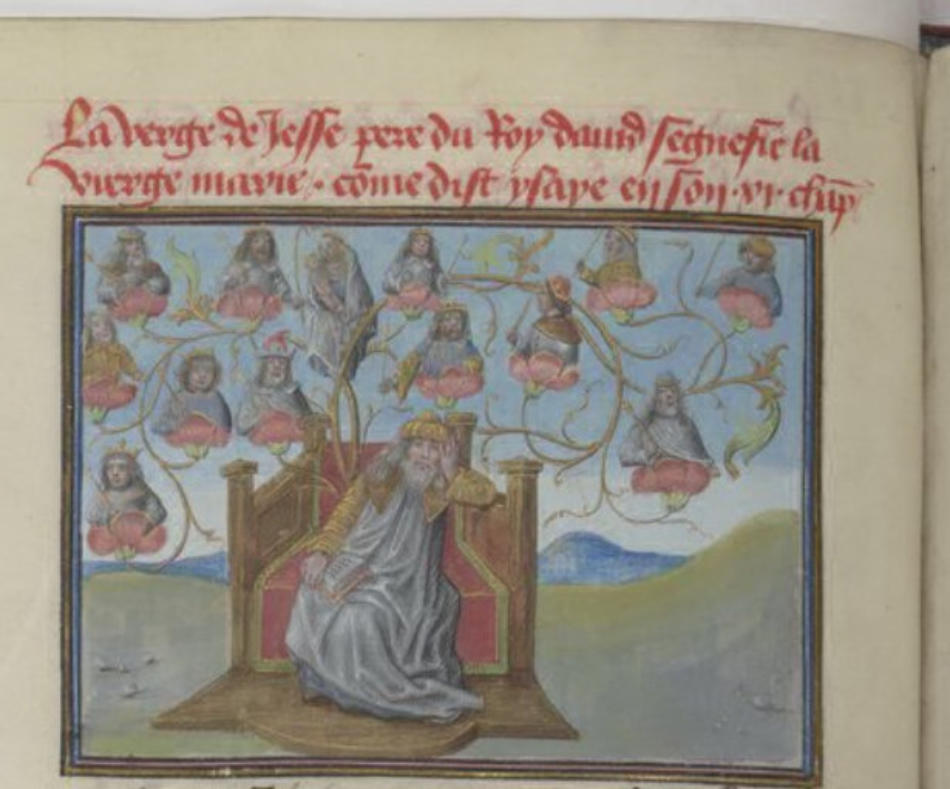 La verge de Jesse pere du Roy dauid segnefie la
vierge marie · cōme dist ysaye en son · xi · chap̄